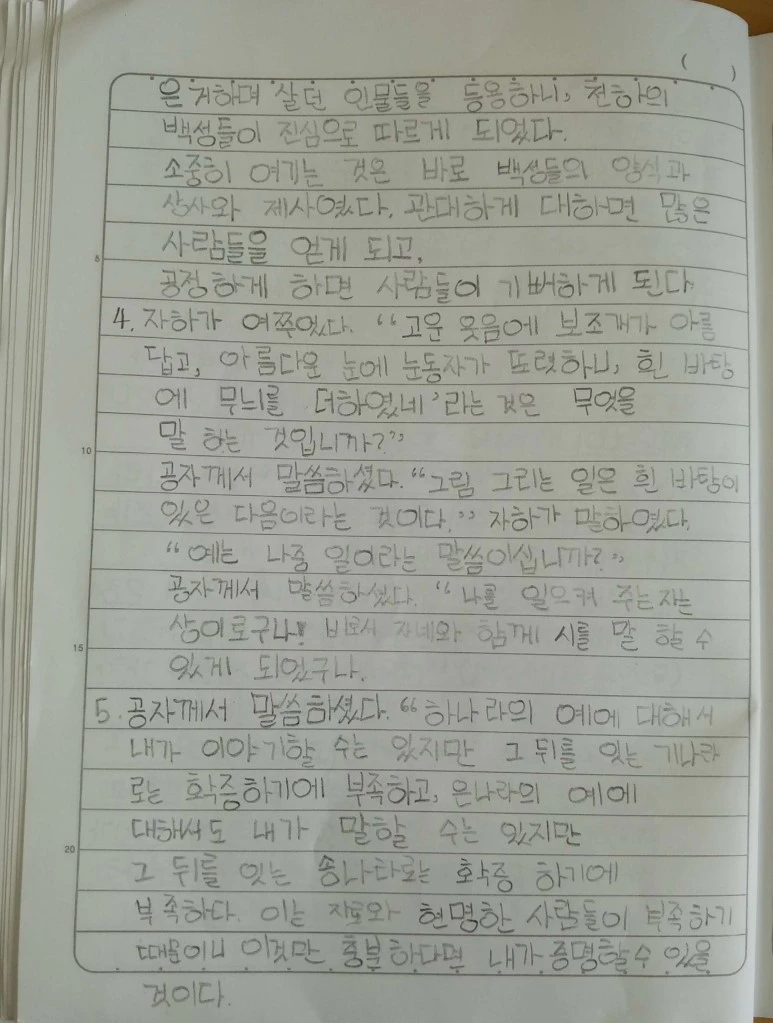 ( )
은거하며 살던 인물들을 등용하니, 천하의
백성들이 진심으로 따르게 되었다.
소중히 여기는 것은 바로 백성들의 양식과
상사와 제사였다. 관대하게 대하면 많은
사람들을 얻게 되고,
5
공정하게 하면 사람들이 기뻐하게 된다
4. 자하가 여쭈었다. "고운 웃음에 보조개가 아름
답고, 아름다운 눈에 눈동자가 또렷하니, 흰 바탕
에 무늬를 더하였네'라는 것은 무엇을
말 하는 것입니까?"
10
공자께서 말씀하셨다. "그림 그리는 일은 흰 바탕이
있은 다음이라는 것이다." 자하가 말하였다.
"예는 나중 일이라는 말씀이십니까?"
공자께서 말씀하셨다. "나를 일으켜 주는 자는
상이로구나! 비로서 자네와 함께 시를 말 할 수
15
있게 되었구나.
5. 공자께서 말씀하셨다. "하나라의 예에 대해서
내가 이야기할 수는 있지만 그 뒤를 잇는 기나라
로는 확증하기에 부족하고, 은나라의 예에
대해서도 내가 말할 수는 있지만
20
그 뒤를 잇는 송나라로는 확증 하기에
부족하다. 이는 자료와 현명한 사람들이 부족하기
때문이니 이것만 충분하다면 내가 증명할수 있을
것이다.